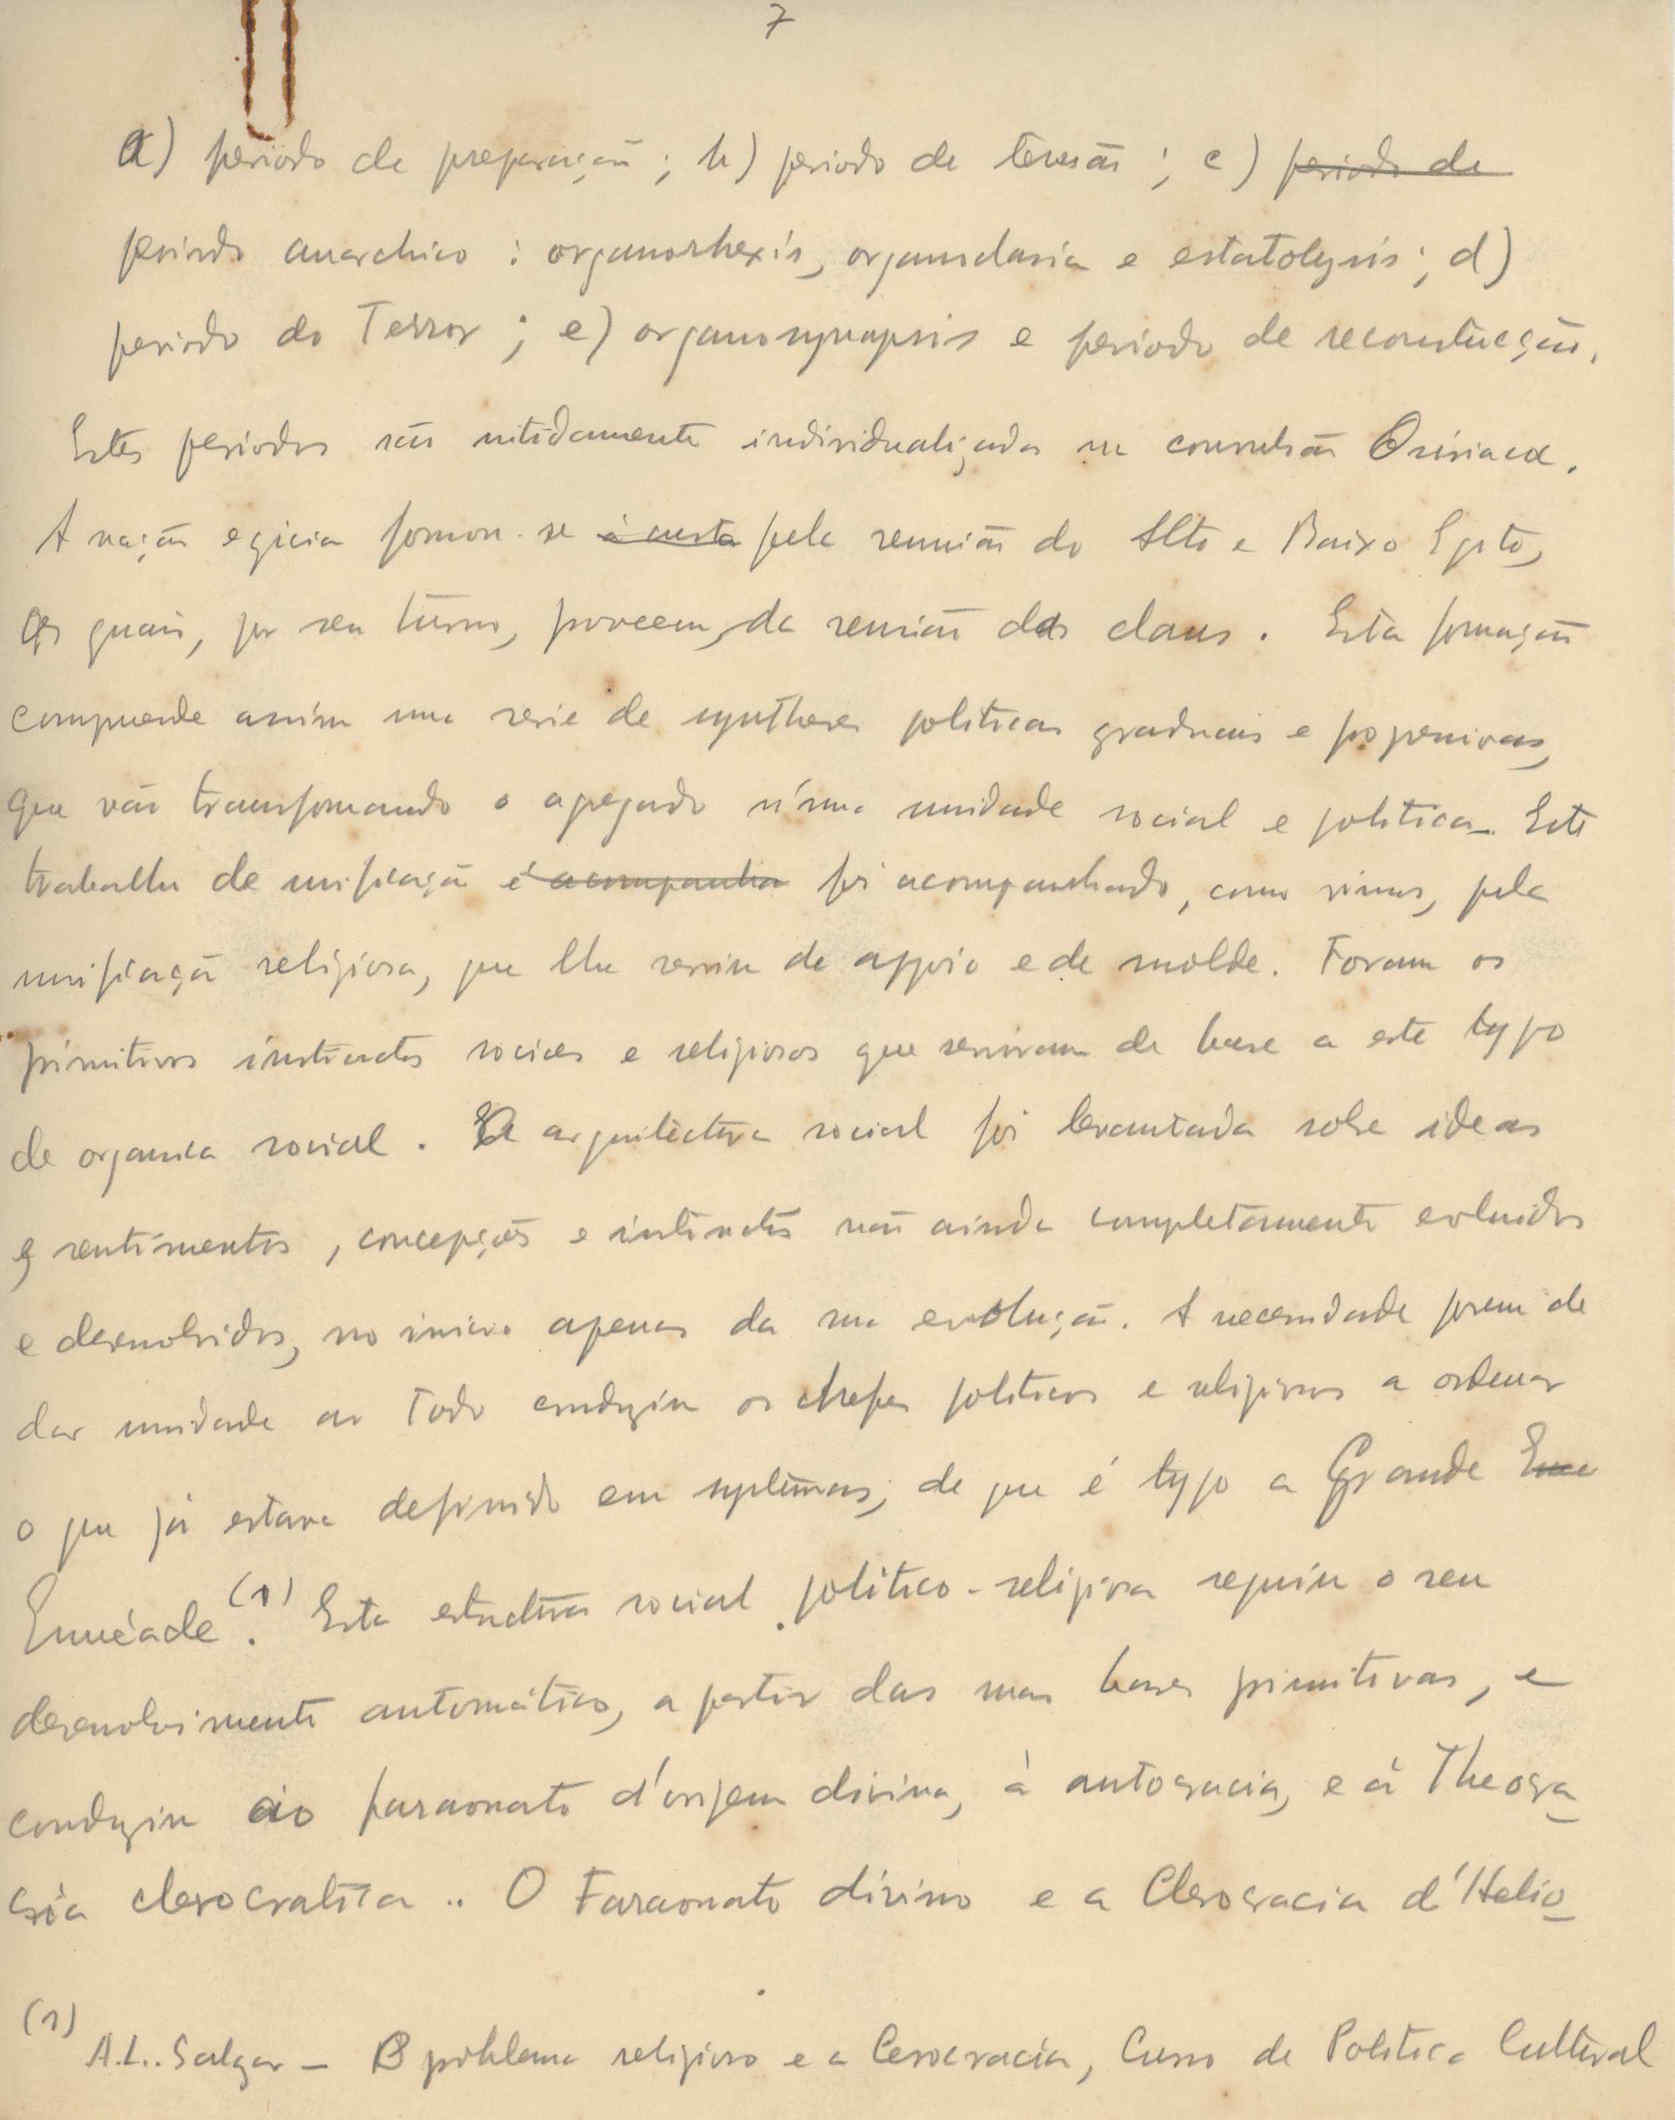 7
a) periodo de preparação; b) periodo de tensão; c) periodo de
periodo anarchico: organorhexis, organoclasia e estatolysis; d)
periodo do Terror; e) organosynapsis e periodo de reconstucção.
Estes periodos são nitidamente individualizados na convulsão Osiriaca.
A nação egicia formou-se á custa pela reunião do Alto e Baixo Egito,
Os quais, por seu turno, proveem, da reunião dos clans. Esta formação
compreende assim uma serie de syntheses politicas graduais e progressivas,
que vão transformando o agregado n'uma unidade social e politica. Este
trabalho de unificação é acompanha foi acompanhado, como vimos, pela
unificação religiosa, que lhe serviu de appoio e de molde. Foram os
primitivos instinctos sociaes e religiosos que serviram de base a este typo
de organica social. A arquitectura social foi levantada sobre ideas
e sentimentos, concepções e instinctos não ainda completamente evoluidos
e desenvolvidos, no inicio apenas da sua evolução. A necessidade porem de
dar unidade ao Todo conduziu os chefes politicos e religiosos a ordenar
o que já estava definido em systemas, de que é typo a Grande Enne
Ennéade.(1) Esta estructura social politico-religiosa seguiu o seu
desenvolvimento automático, a partir das suas bases primitivas, e
conduziu ao faraonato d'origem divina, à autocracia, e á Theocra
cria clerocratica.. O Faraonato divino e a Clerocracia d'Helio
(1) A.L. Salgar - O problema religioso e a Cerocracia, Curso de Politica Cultural